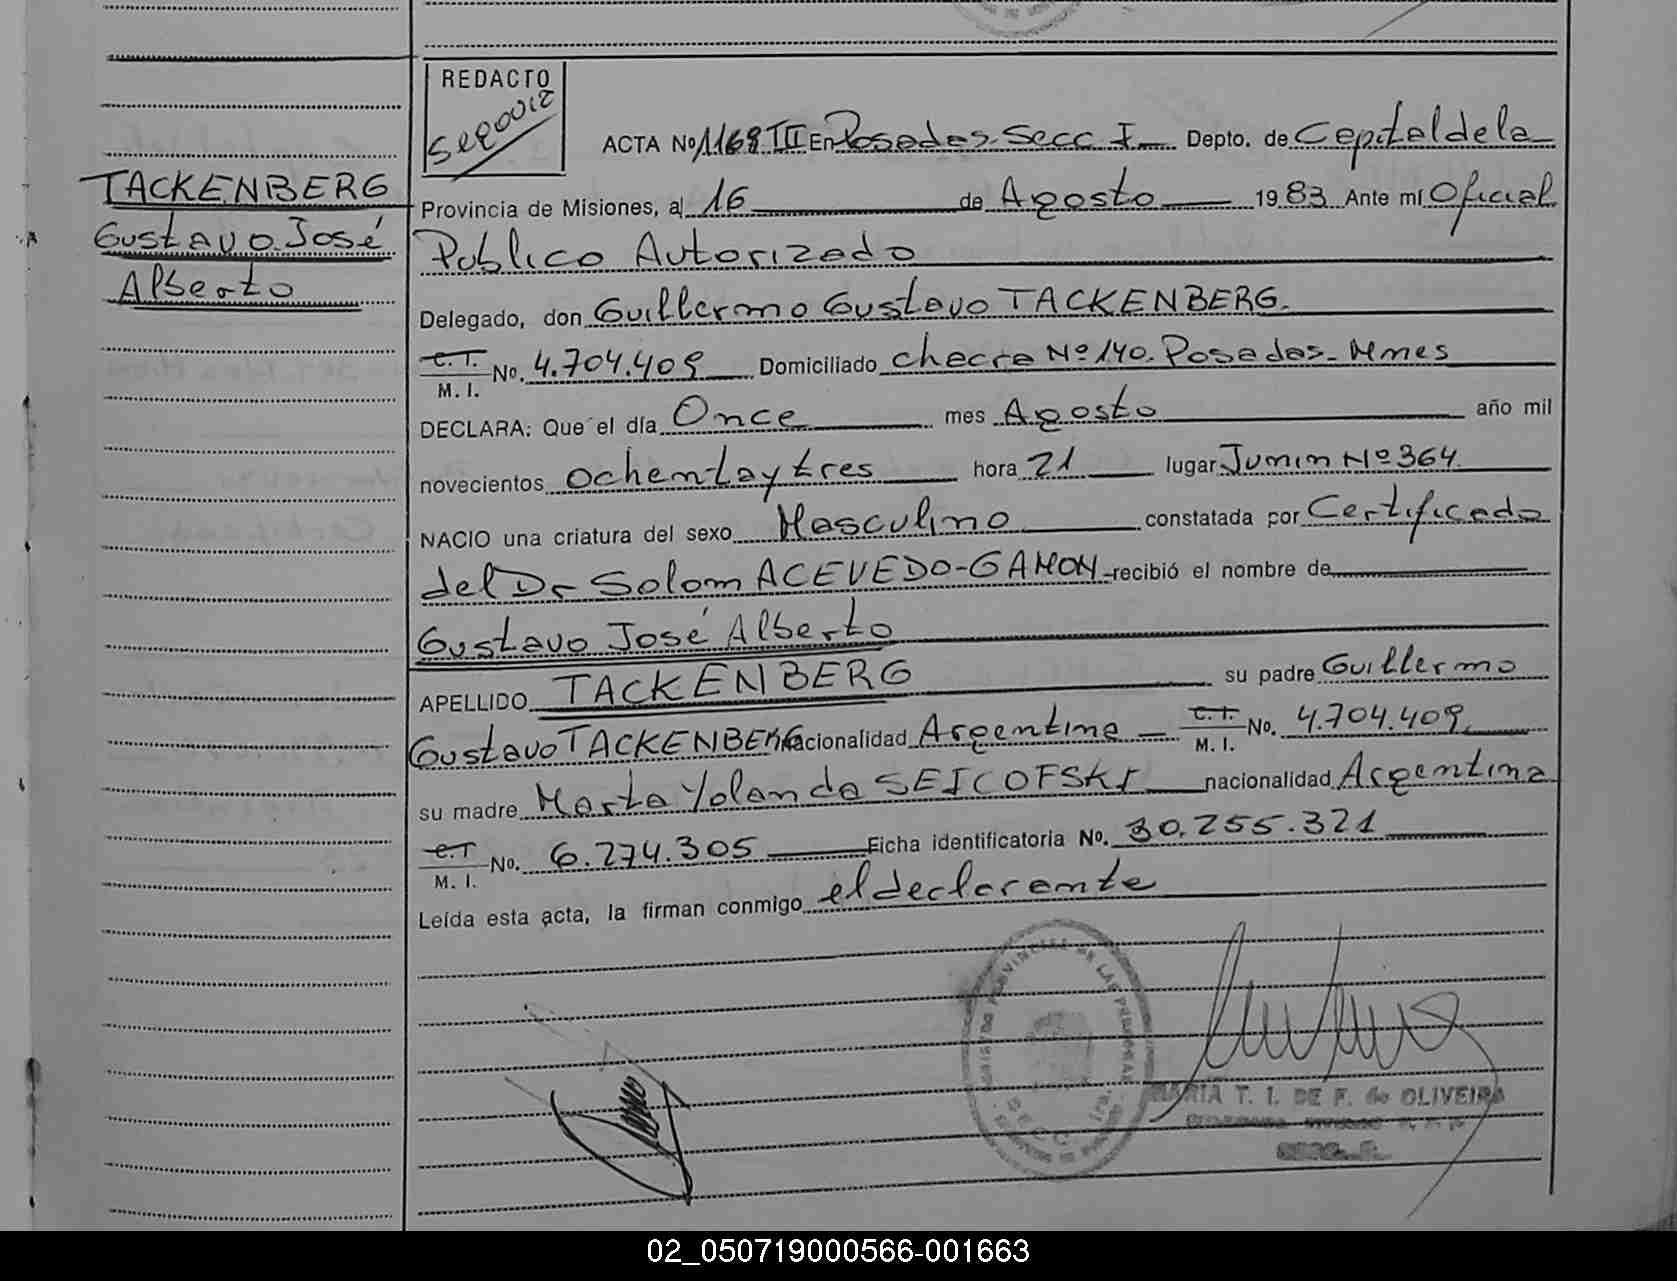 REDACTO
Segovia
ACTA No 1168 III En Posadas-Secc I Depto. de Capital de la
TACKENBERG
Provincia de Misiones, a 16 de Agosto 1983 Ante mí Oficial
Gustavo José
Publico Autorizado
Alberto
Delegado, don Guillermo Gustavo TACKENBERG.
C.I. M. I. No. 4.704.409 Domiciliado chacra Nº 140. Posadas-Mnes
DECLARA: Que el día Once mes Agosto año mil
novecientos ochenta y tres hora 21 lugar Junin Nº 364
NACIO una criatura del sexo Masculino constatada por Certificado
del Dr Solom ACEVEDO-GAMON recibió el nombre de
Gustavo José Alberto
APELLIDO TACKENBERG su padre Guillermo
Gustavo TACKENBERG nacionalidad Argentina C.I. M. I. No. 4.704.409
su madre Marta Yolanda SEICOFSKI nacionalidad Argentina
C.I M. I. No. 6.274.305 Ficha identificatoria No. 30.255.321
Leída esta acta, la firman conmigo el declarante
REGISTRO PROVINCIAL DE LAS PERSONAS
MARIA T. I. DE F. de OLIVEIRA
02_050719000566-001663